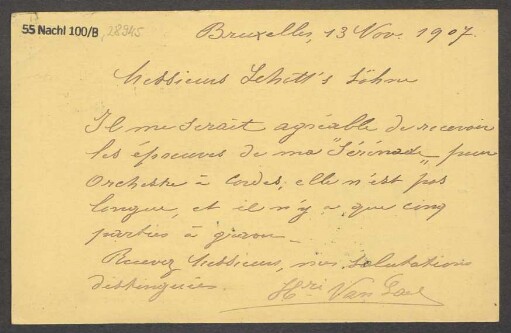 55 Nachl 100/B, 28945
Bruxelles, 13 Nov. 1907.
Messieurs Schott's Söhne
Il me serait agréable de recevoir
les épreuves de ma "Sérénade" pour
Orchestre à cordes, elle n'est pas
longue, et il n'y a que cinq
parties à graver_
Recevez Messieurs, mes salutations
distinguées.
Hri Van Gael